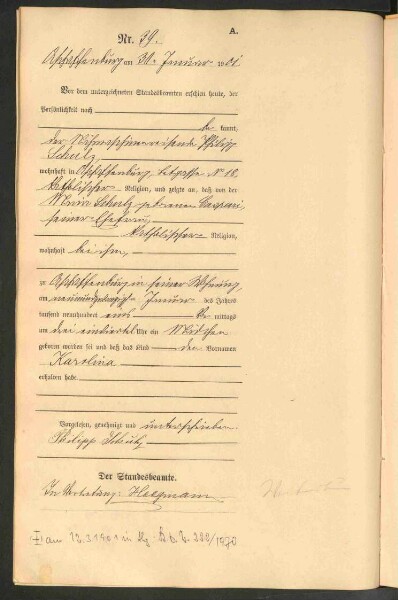 A.
Nr. 39.
Aschaffenburg am 31. Januar 1901
Vor dem unterzeichneten Standesbeamten erschien heute, der
Persönlichkeit nach
be kannt,
der Philipp
Schutz,
wohnhaft in Aschaffenburg, № 18,
katholischer Religion, und zeigte an, daß von der
Maria Schutz geborenen
seiner Ehefrau,
katholischer Religion,
wohnhaft bei ihm,
zu Aschaffenburg in seiner Wohnung,
am neunundzwanzigsten Januar des Jahres
tausend neunhundert eins mittags
um drei einviertel Uhr ein Mädchen
geboren worden sei und daß das Kind den Vornamen
Karolina
erhalten habe.
Vorgelesen, genehmigt und unterschrieben
Philipp Schutz
Der Standesbeamte.
In Vertretung: Hegmann
am 12.3.1901 in 1970